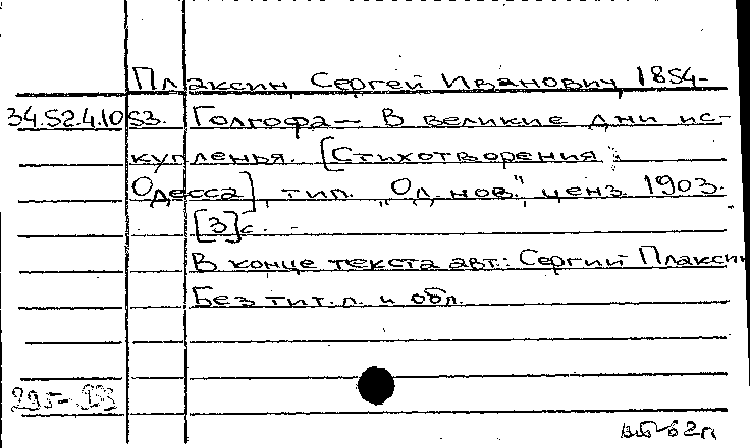 Плаксин, Сергей Иванович, 1854-
34.52.4.10 53. Голгофа — В великие дни ис-
купленья. [Стихотворения
Одесса], тип. „Од. нов.", ценз. 1903.
[3]с.
В конце текста авт.: Сергий Плаксин
Без тит. л. и обл.